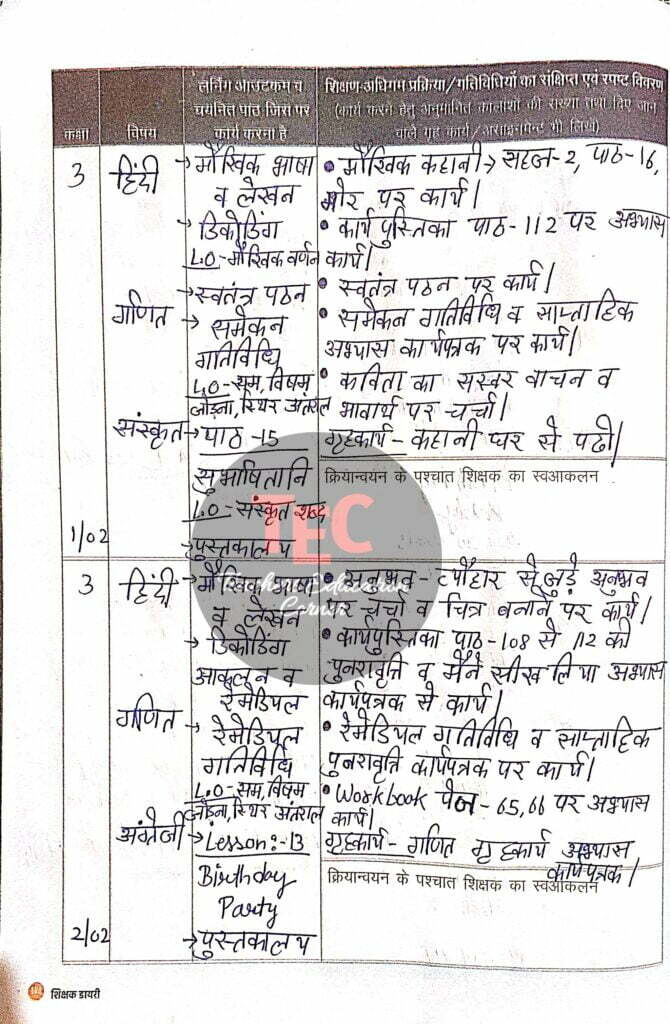 कक्षा
विषय
लर्निंग आउटकम व
चयनित पाठ जिस पर
कार्य करना है
शिक्षण-अधिगम प्रक्रिया/गतिविधियों का संक्षिप्त एवं स्पष्ट विवरण
(कार्य करने हेतु अनुमानित कालांशों की संख्या तथा दिए जाने
वाले गृह कार्य/असाइनमेन्ट भी लिखें)
3
हिंदी
→ मौखिक भाषा
व लेखन
→ डिकोडिंग
L.O-मौखिक वर्णन
→ स्वतंत्र पठन
गणित
→ समेकन
गतिविधि
L.O-सम, विषम
जोड़ना, स्थिर अंतराल
संस्कृत
→ पाठ -15
सुभाषितानि
L.O- संस्कृत शब्द
→ पुस्तकालय
1/02
• मौखिक कहानी → सहज-2, पाठ-16,
मोर पर कार्य।
• कार्यपुस्तिका पाठ-112 पर अभ्यास
कार्य।
• स्वतंत्र पठन पर कार्य।
• समेकन गतिविधि व साप्ताहिक
अभ्यास कार्यपत्रक पर कार्य।
• कविता का सस्वर वाचन व
भावार्थ पर चर्चा।
गृहकार्य- कहानी घर से पढो।
क्रियान्वयन के पश्चात शिक्षक का स्वआकलन
TEC
Teachers Education
Corner
3
हिंदी
→ मौखिक भाषा
व लेखन
→ डिकोडिंग
आकलन व
रेमेडियल
गणित
→ रेमेडियल
गतिविधि
L.O-सम, विषम
जोड़ना, स्थिर अंतराल
अंग्रेजी
→ Lesson:-13
Birthday
Party
→ पुस्तकालय
2/02
• अनुभव- त्यौहार से जुड़े अनुभव
पर चर्चा व चित्र बनाने पर कार्य।
• कार्यपुस्तिका पाठ-108 से 112 की
पुनरावृत्ति व मैंने सीख लिया अभ्यास
कार्यपत्रक से कार्य।
• रेमेडियल गतिविधि व साप्ताहिक
पुनरावृत्ति कार्यपत्रक पर कार्य।
• Workbook पेज-65,66 पर अभ्यास
कार्य।
गृहकार्य- गणित गृहकार्य अभ्यास
कार्यपत्रक।
क्रियान्वयन के पश्चात शिक्षक का स्वआकलन
शिक्षक डायरी